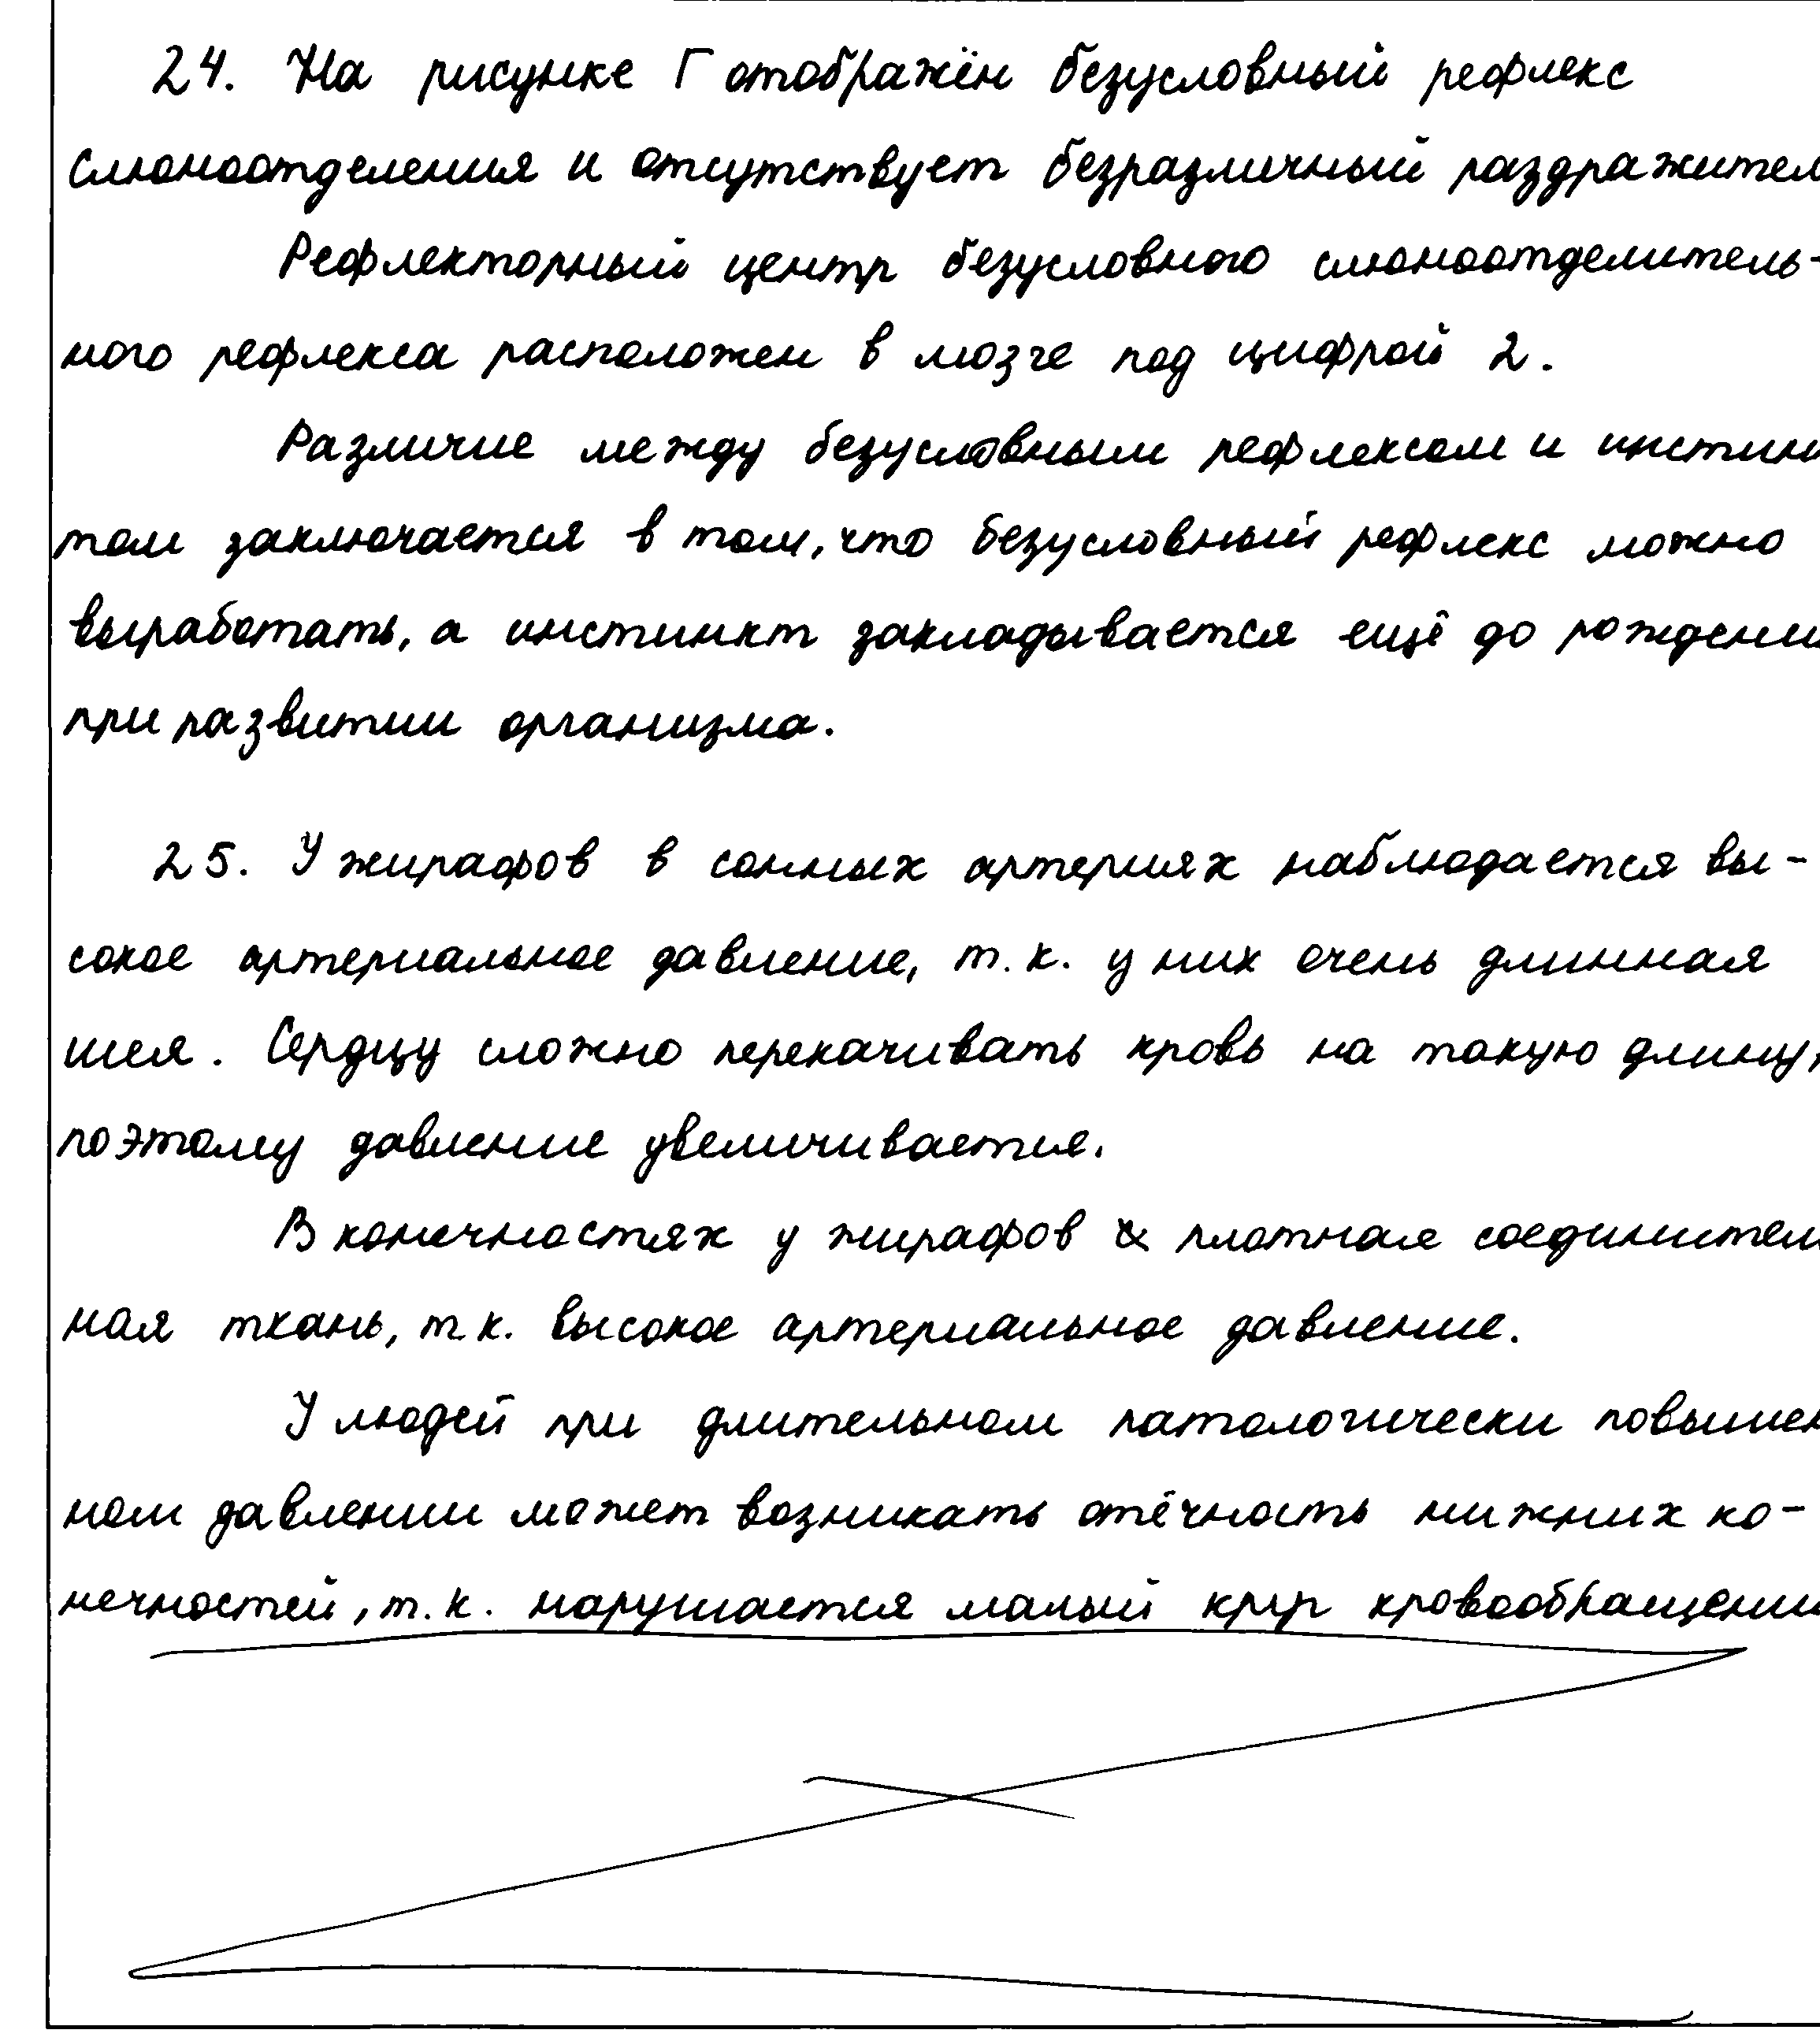 24. На рисунке Г отображён безусловный рефлекс
слюноотделения и отсутствует безразличный раздражител
Рефлекторный центр безусловного слюноотделитель-
ного рефлекса расположен в мозге под цифрой 2.
Различие между безусловным рефлексом и инстин
том заключается в том, что безусловный рефлекс можно
выработать, а инстинкт закладывается ещё до рождени
при развитии организма.
25. У жирафов в сонных артериях наблюдается вы-
сокое артериальное давление, т.к. у них очень длинная
шея. Сердцу сложно перекачивать кровь на такую длину,
поэтому давление увеличивается.
В конечностях у жирафов плотная соединител
ная ткань, т.к. высокое артериальное давление.
У людей при длительном патологически повышен
ном давлении может возникать отёчность нижних ко-
нечностей, т.к. нарушается малый круг кровообращени